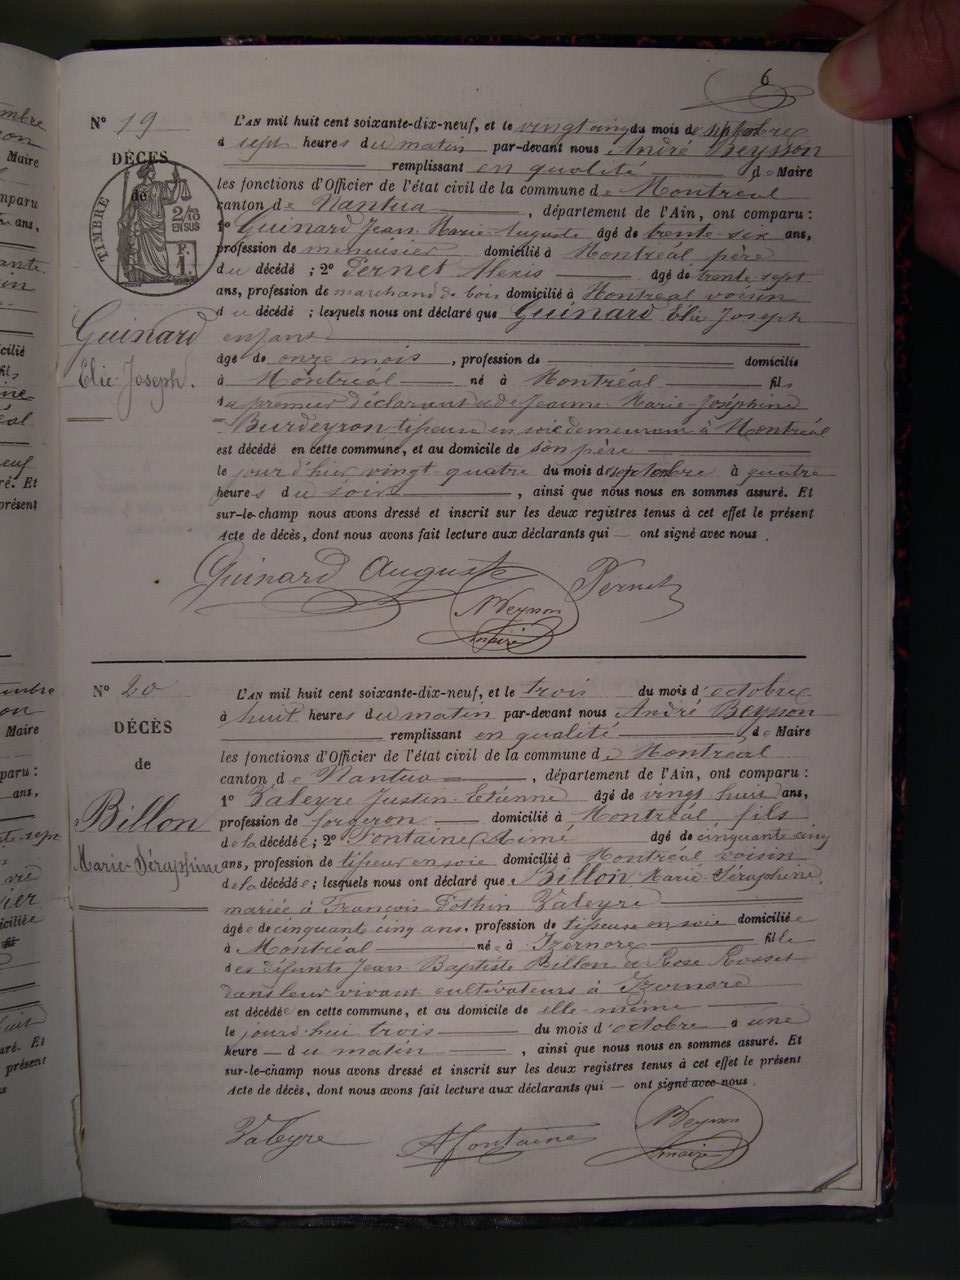 6
N° 19
DÉCÈS
de
TIMBRE
2/10
EN SUS
F.
1.
Guinard
Elie-Joseph.
L'AN mil huit cent soixante-dix-neuf, et le vingt cinq du mois de septembre
à sept heures du matin par-devant nous André Beysson
remplissant en qualité de Maire
les fonctions d'Officier de l'état civil de la commune de Montréal
canton de Nantua, département de l'Ain, ont comparu :
1° Guinard Jean-Marie-Auguste âgé de trente-six ans,
profession de menuisier domicilié à Montréal père
du décédé ; 2° Pernet Alexis âgé de trente sept
ans, profession de marchand de bois domicilié à Montréal voisin
du décédé ; lesquels nous ont déclaré que Guinard Elie Joseph
enfant
âgé de onze mois, profession de domicilié
à Montréal né à Montréal fils
du premier déclarant et de Jeanne-Marie-Joséphine
Burdeyron tisseuse en soie demeurant à Montréal
est décédé en cette commune, et au domicile de son père
le jour d'hier vingt-quatre du mois de septembre à quatre
heures du soir, ainsi que nous nous en sommes assuré. Et
sur-le-champ nous avons dressé et inscrit sur les deux registres tenus à cet effet le présent
Acte de décès, dont nous avons fait lecture aux déclarants qui — ont signé avec nous.
Guinard Auguste
Pernet
A Beysson
maire
N° 20
DÉCÈS
de
Billon
Marie-Séraphine
L'AN mil huit cent soixante-dix-neuf, et le trois du mois d'octobre
à huit heures du matin par-devant nous André Beysson
remplissant en qualité de Maire
les fonctions d'Officier de l'état civil de la commune de Montréal
canton de Nantua, département de l'Ain, ont comparu :
1° Valeyre Justin-Etienne âgé de vingt huit ans,
profession de forgeron domicilié à Montréal fils
de la décédée ; 2° Fontaine Aimé âgé de cinquante cinq
ans, profession de tisseur en soie domicilié à Montréal voisin
de la décédée ; lesquels nous ont déclaré que Billon Marie-Séraphine,
mariée à François Pothin Valeyre
âgée de cinquante cinq ans, profession de tisseuse en soie domiciliée
à Montréal née à Izernore fille
des défunts Jean Baptiste Billon et Rose Rosset
dans leur vivant cultivateurs à Izernore
est décédée en cette commune, et au domicile de elle-même
le jourd'hui trois du mois d'octobre à une
heure — du matin, ainsi que nous nous en sommes assuré. Et
sur-le-champ nous avons dressé et inscrit sur les deux registres tenus à cet effet le présent
Acte de décès, dont nous avons fait lecture aux déclarants qui — ont signé avec nous.
Valeyre
A fontaine
A Beysson
maire